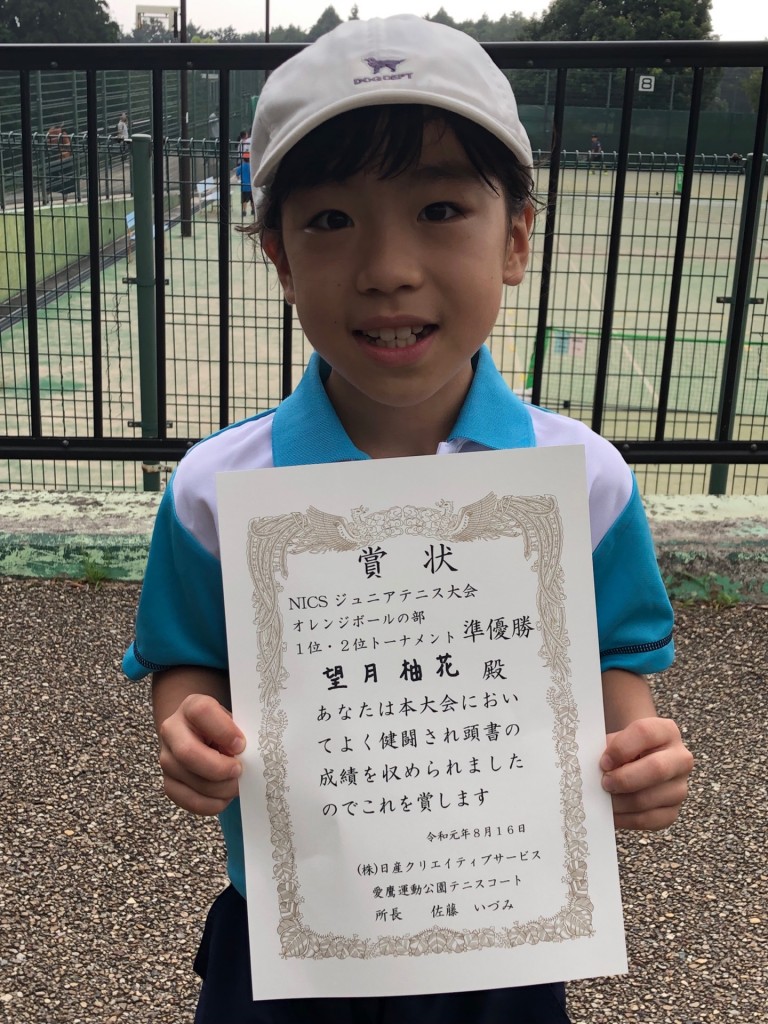 DOG DEPT
8
賞 状
NICS ジュニアテニス大会
オレンジボールの部
1位・2位トーナメント 準優勝
望月柚花 殿
あなたは本大会におい
てよく健闘され頭書の
成績を収められました
のでこれを賞します
令和元年8月16日
(株)日産クリエイティブサービス
愛鷹運動公園テニスコート
所長 佐藤 いづみ